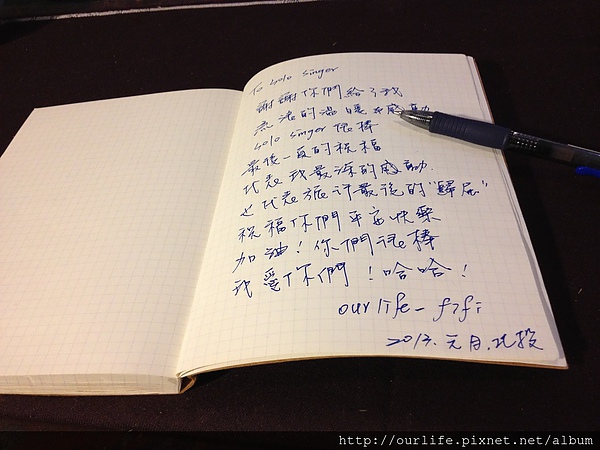 To solo singer
謝謝你們給了我
無法的溫暖和感動
solo singer 很棒
最後一頁的祝福
代表我最深的感動
也代表旅行最後的"歸屬"
祝福你們平安快樂
加油！你們很棒
我愛你們！哈哈！
our life - fifi
2013.元月.北投
http://ourlife.pixnet.net/album